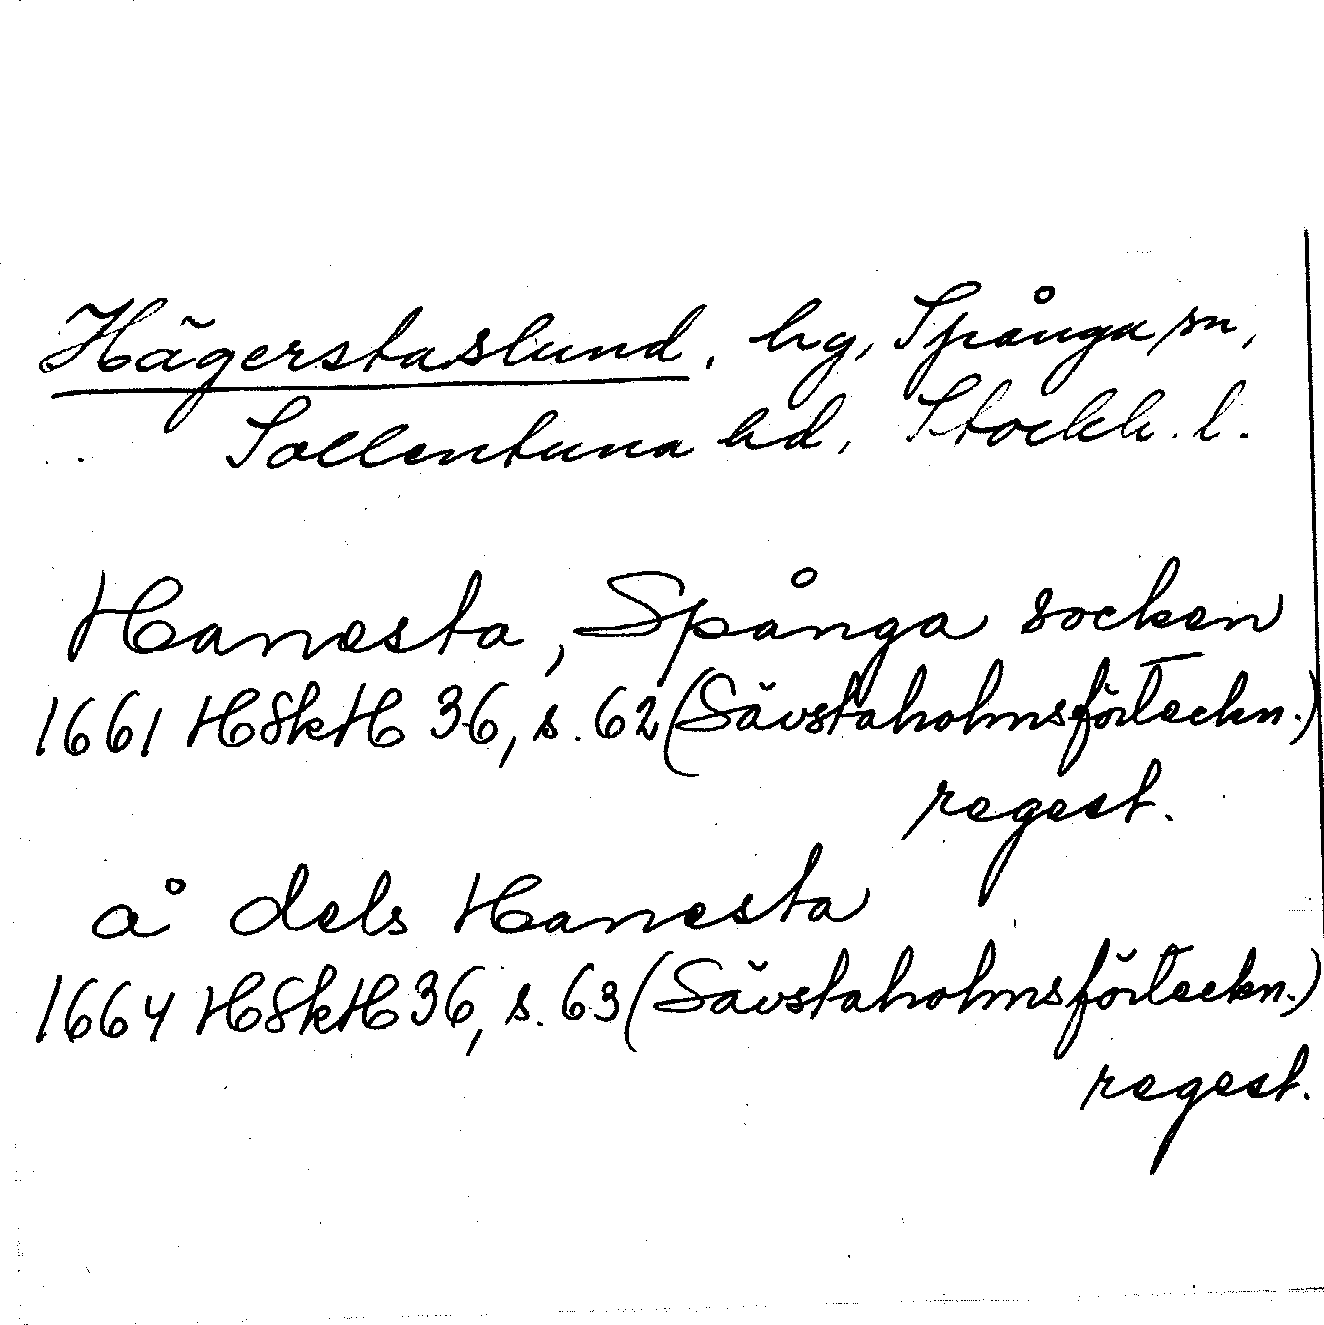 Hägerstaslund, hg, Spånga sn,
Sollentuna hd, Stockh. l.
Hanesta, Spånga socken
1661 HSkH 36, s. 62 (Sävstaholmsförteckn.)
regest.
å dels Hanesta
1664 HSkH 36, s. 63 (Sävstaholmsförteckn.)
regest.